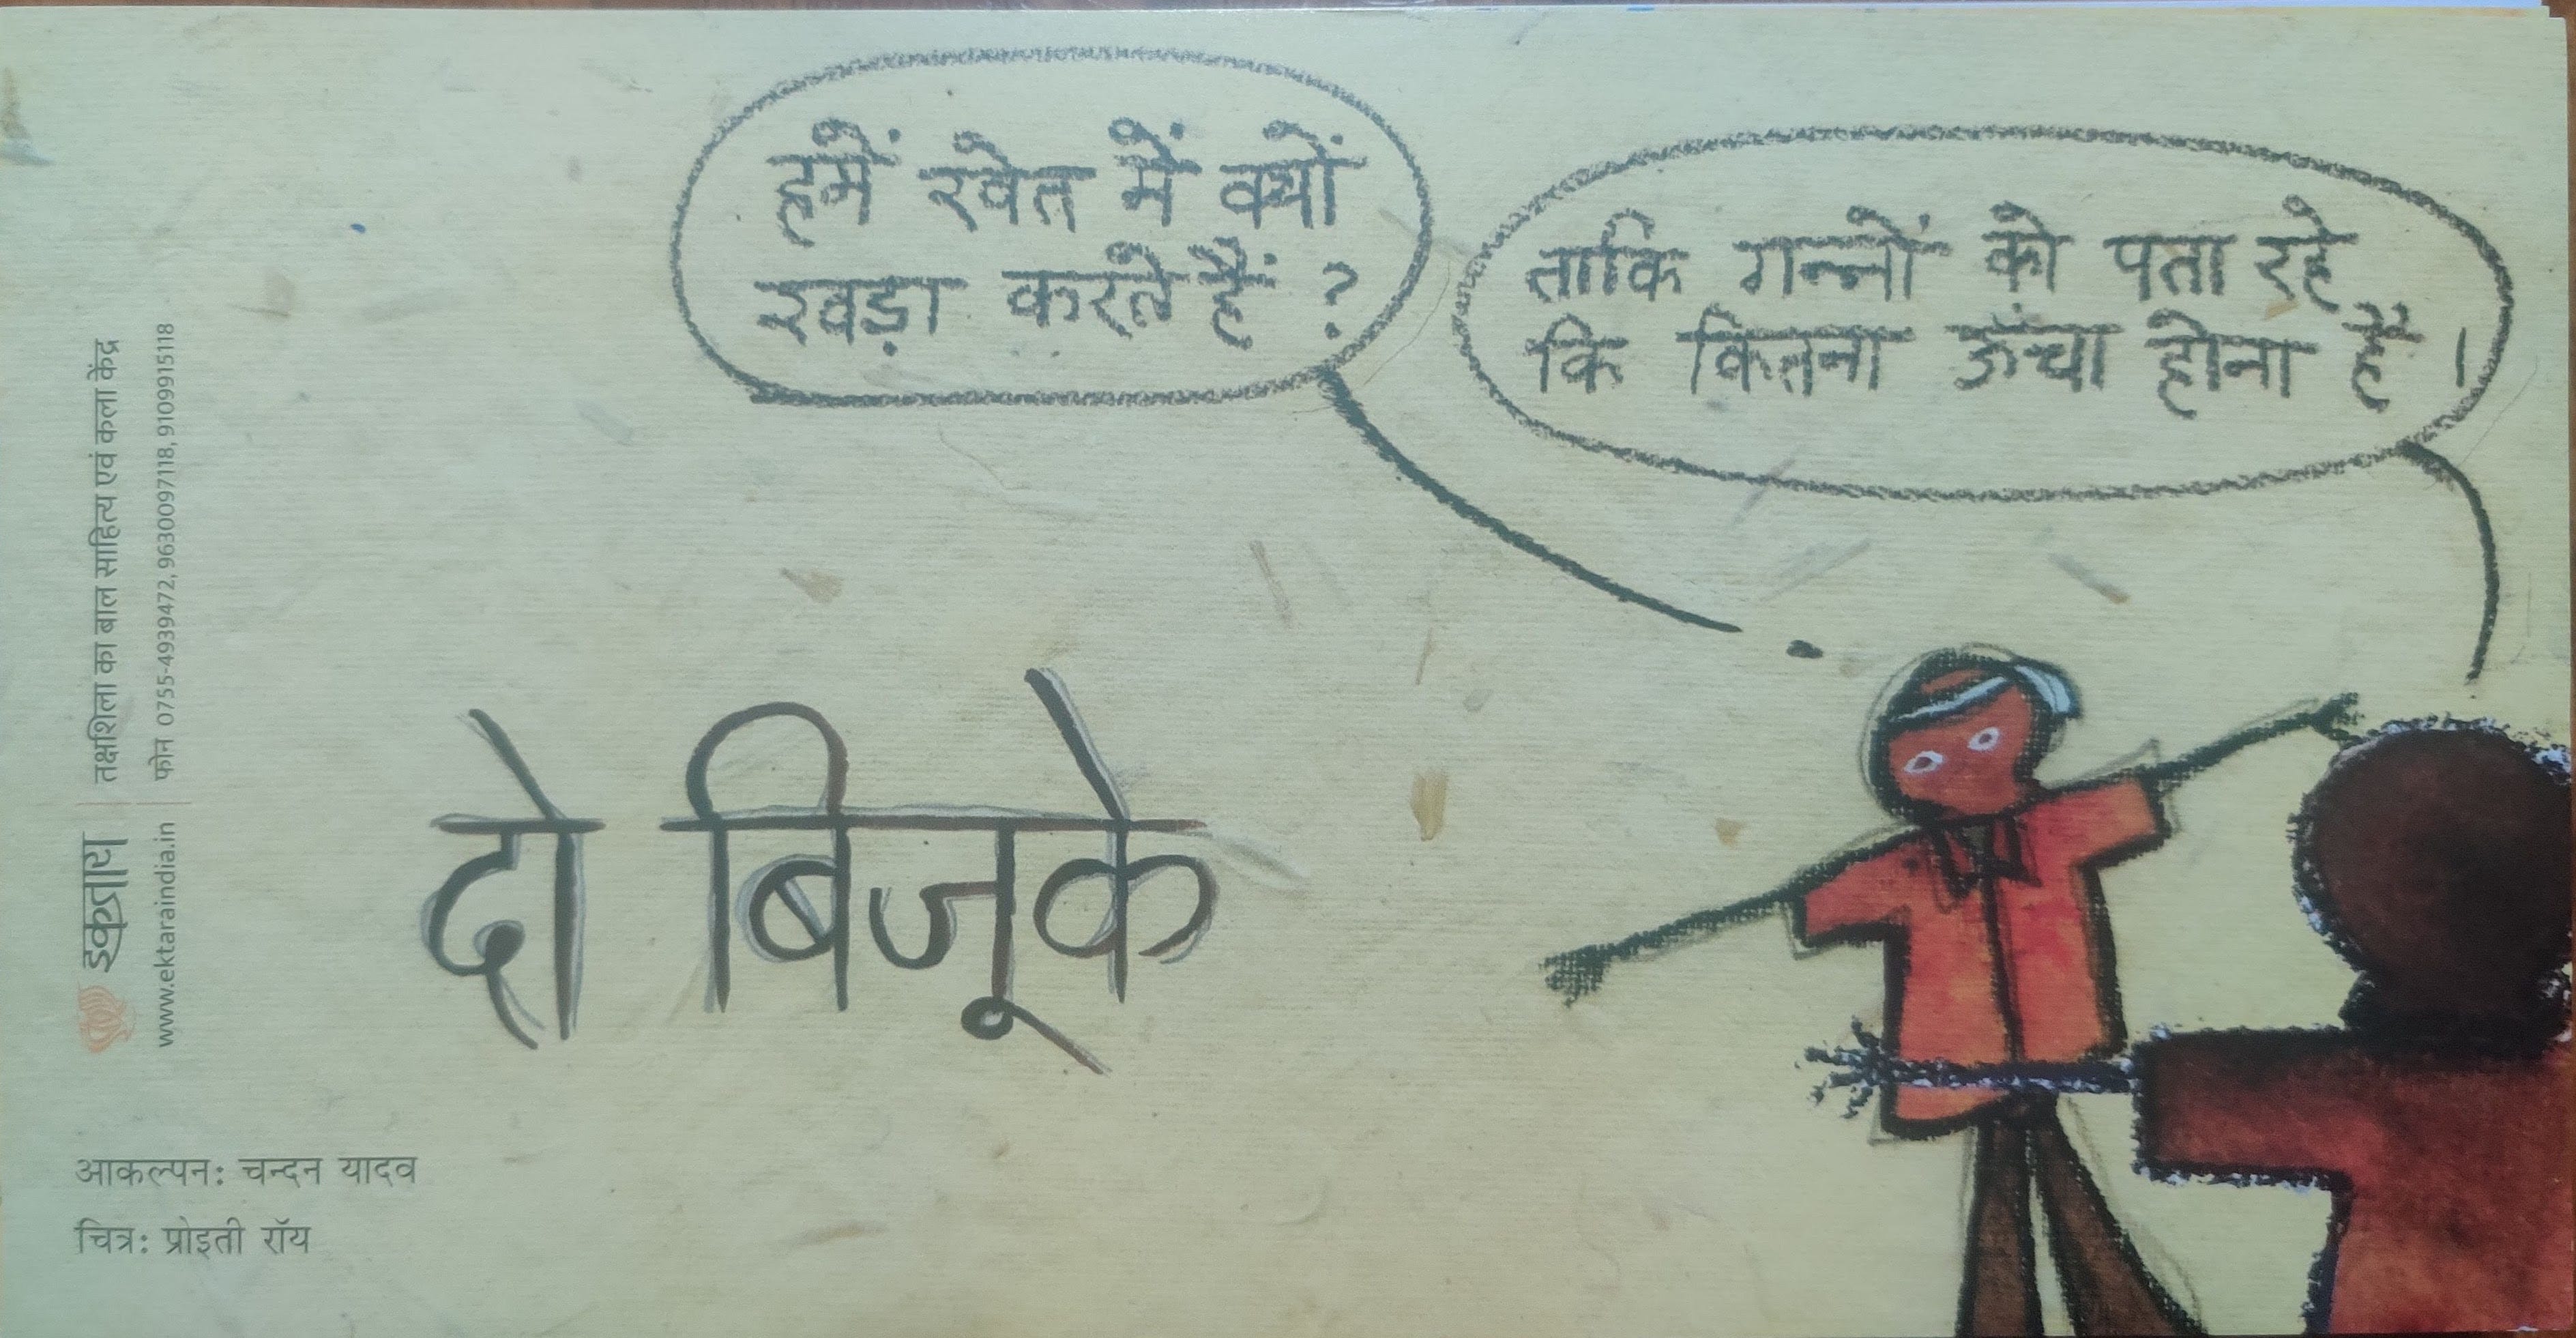 हमें खेत में क्यों
खड़ा करते हैं ?
ताकि गन्नों को पता रहे
कि कितना ऊँचा होना है ।
दो बिजूके
इकतारा
तक्षशिला का बाल साहित्य एवं कला केंद्र
www.ektaraindia.in
फोन 0755-4939472, 9630097118, 9109915118
आकल्पन: चन्दन यादव
चित्र: प्रोइती रॉय